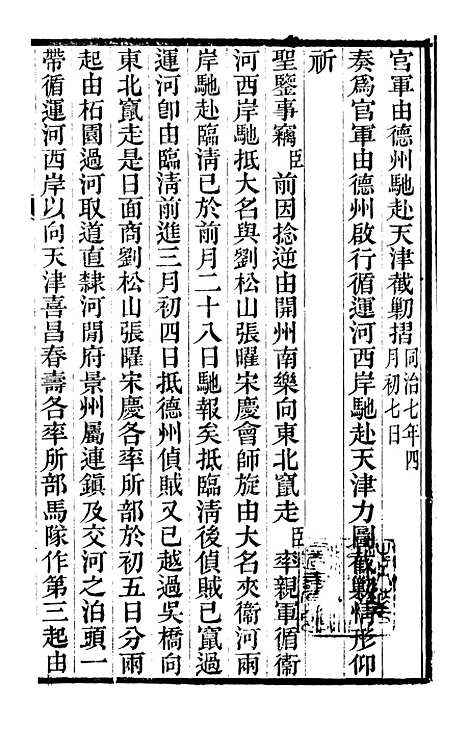 官軍由德州馳赴天津截勦摺同治七年四月初七日
奏爲官軍由德州啟行循運河西岸馳赴天津力圖截勦情形仰
祈
聖鑒事竊臣前因捻逆由開州南樂向東北竄走臣率親軍循衞
河西岸馳抵大名與劉松山張曜宋慶會師旋由大名夾衞河兩
岸馳赴臨清已於前月二十八日馳報矣抵臨清後偵賊已竄過
運河卽由臨清前進三月初四日抵德州偵賊又已越過吳橋向
東北竄走是日面商劉松山張曜宋慶各率所部於初五日分兩
起由柘園過河取道直隸河間府景州屬連鎮及交河之泊頭一
帶循運河西岸以向天津喜昌春壽各率所部馬隊作第三起由